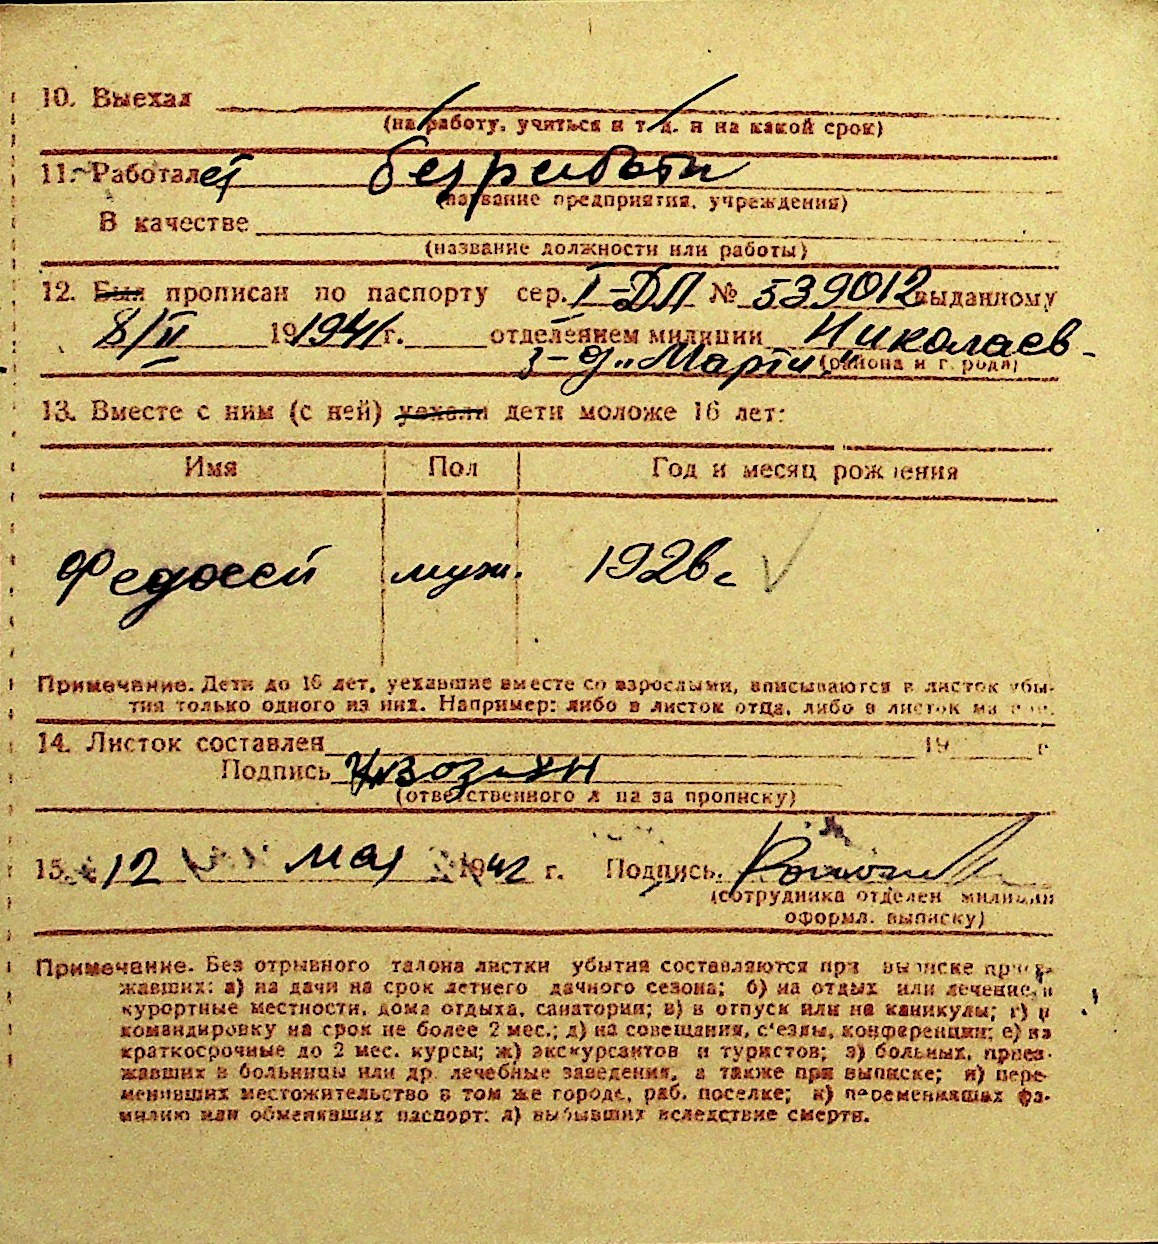 10. Выехал
(на работу, учиться и т. д. и на какой срок)
11. Работает без работы
(название предприятия, учреждения)
В качестве
(название должности или работы)
12. Был прописан по паспорту сер. I-ДП № 539012 выданному
8/II 19 1941 г. отделением милиции Николаев-
з-д „Марти" (района и города)
13. Вместе с ним (с ней) уехали дети моложе 16 лет:
Имя Пол Год и месяц рождения
Федосей муж. 1926
Примечание. Дети до 16 лет, уехавшие вместе со взрослыми, вписываются в листок убы-
тия только одного из них. Например: либо в листок отца, либо в листок
14. Листок составлен 19 г
Подпись
(ответственного лица за прописку)
15. 12 мая 1942 г. Подпись.
(сотрудника отделен милиции
оформл. выписку)
Примечание. Без отрывного талона листки убытия составляются при выписке приез-
жавших: а) на дачи на срок летнего дачного сезона; б) на отдых или лечение в
курортные местности, дома отдыха, санатории; в) в отпуск или на каникулы; г) в
командировку на срок не более 2 мес.; д) на совещания, с'езды, конференции; е) на
краткосрочные до 2 мес. курсы; ж) экскурсантов и туристов; з) больных, приез-
жавших в больницы или др. лечебные заведения, а также при выписке; и) пере-
менивших местожительство в том же городе, раб. поселке; к) переменивших фа-
милию или обменявших паспорт; л) выбывших вследствие смерти.